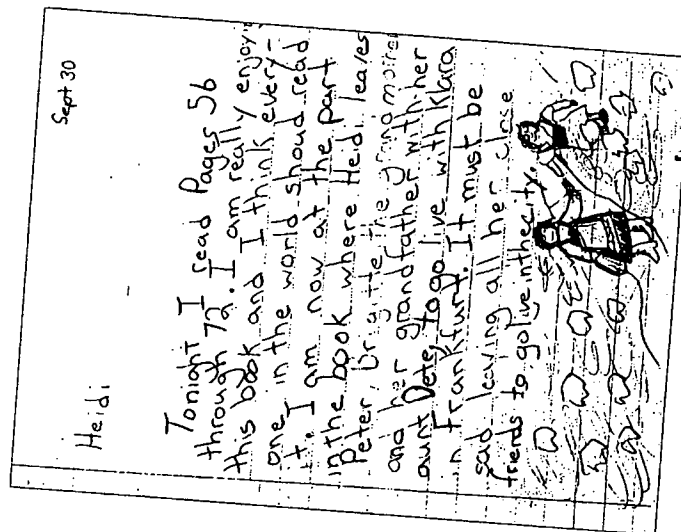 Sept 30
Heidi
Tonight I read Pages 56
through 72. I am really enjoying
this book and I think every-
one in the world shoud read
it. I am now at the part
in the book where Heidi leaves
Peter, Brigitte the grandmother
and her grandfather with her
aunt Dete, to go live with Klara
in Frankfurt. It must be
sad leaving all her close
friends to go live in the city.